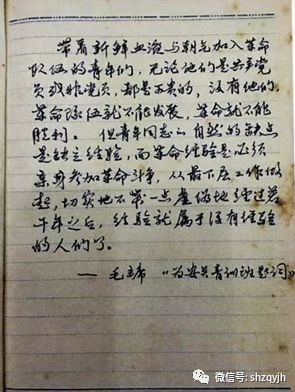 带着新鲜血液与朝气加入革命
队伍的青年们，无论他们是共产党
员或非党员，都是可贵的；没有他们，
革命队伍就不能发展，革命就不能
胜利。但青年同志的自然的缺点
是缺乏经验，而革命经验是必须
亲身参加革命斗争，从最下层工作做
起，切实地不带一点虚伪地经过若
干年之后，经验就属于没有经验
的人们了。
— 毛主席 “为安吴青训班题词”
微信号: shzqyjh